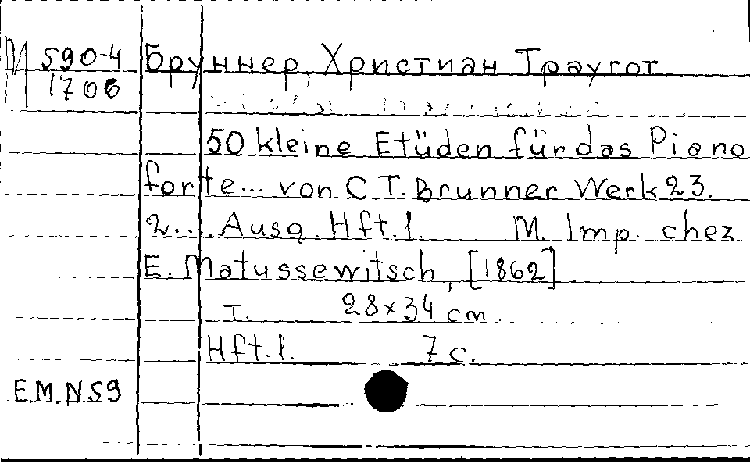 М 590-4 Бруннер, Христиан Траугот
1706
50 kleine Etüden für das Piano
forte... von C. T. Brunner Werk 23.
2... Ausg. Hft. 1. M. Imp. chez
E. Matussewitsch, [1862]
T. 28x34 cm.
Hft. 1. 7 c.
E.M.N 59